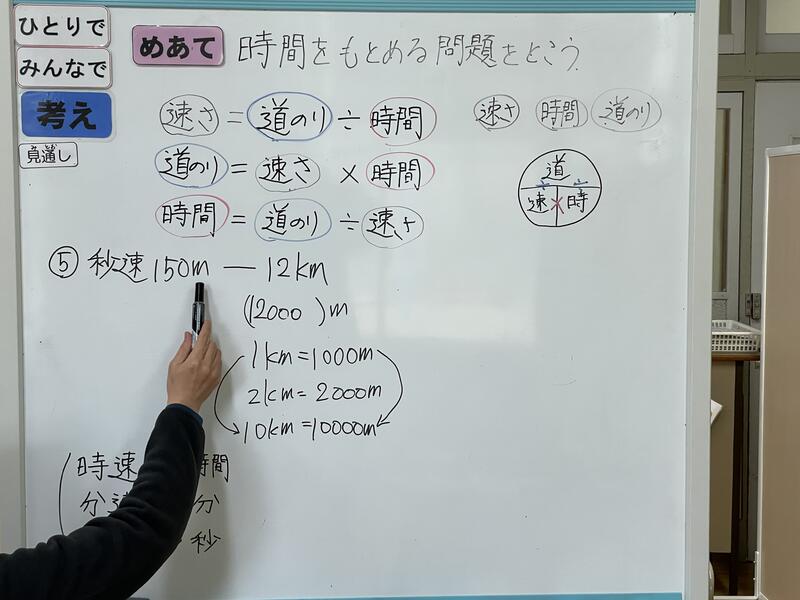 ひとりで
みんなで
めあて 時間をもとめる問題をとこう
考え
見通し
速さ = 道のり ÷ 時間
道のり = 速さ × 時間
時間 = 道のり ÷ 速さ
速さ 時間 道のり
道
速 × 時
⑤ 秒速150m — 12km
(12000 )m
1km=1000m
2km=2000m
10km=10000m
時速 時間
分速 分
秒